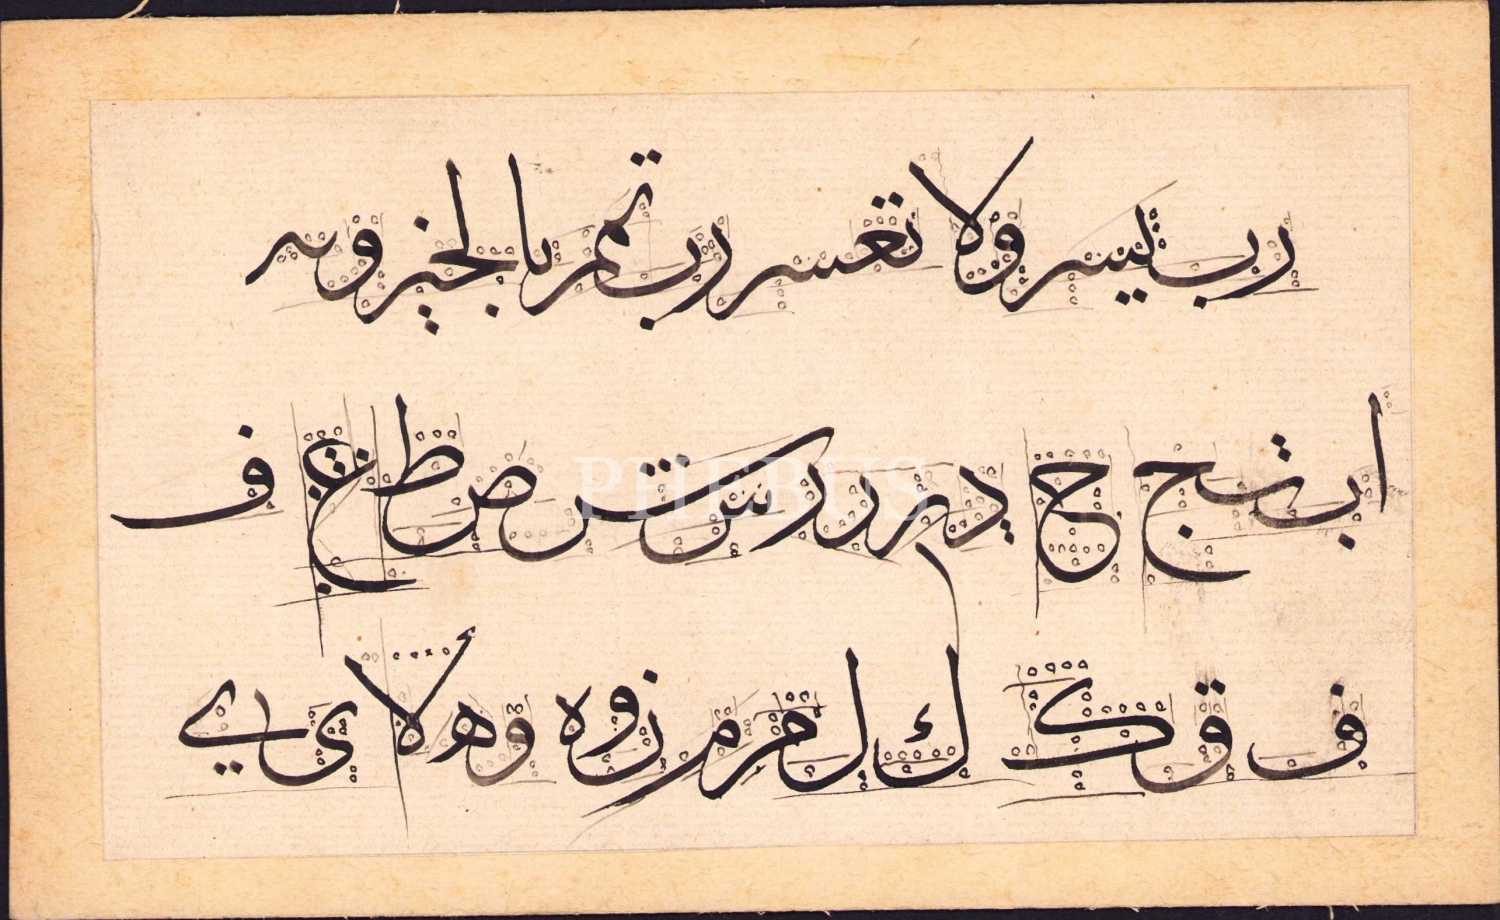 رب يسر ولا تعسر رب تمم بالخير وبه
ا ب ت ج ح د ر ر س ش ص ط ع ف
ف ق ك ك ل م م ن و ه و ه لا ى ے
PHEBUS